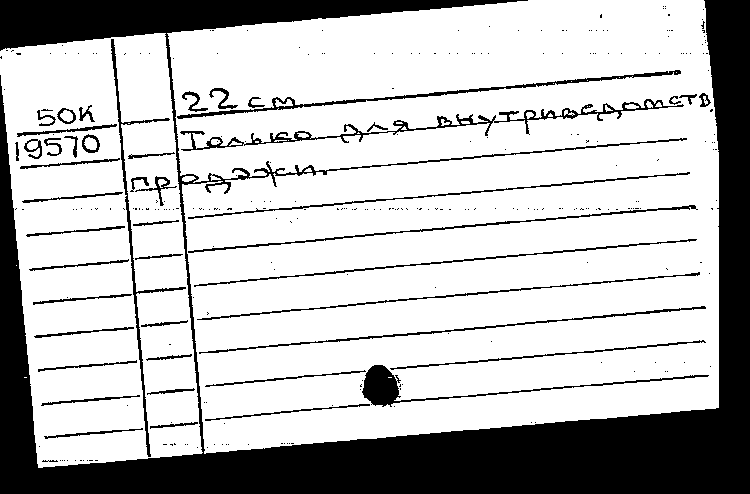 22 см
50К
Только для внутриведомств.
19570
продажи.